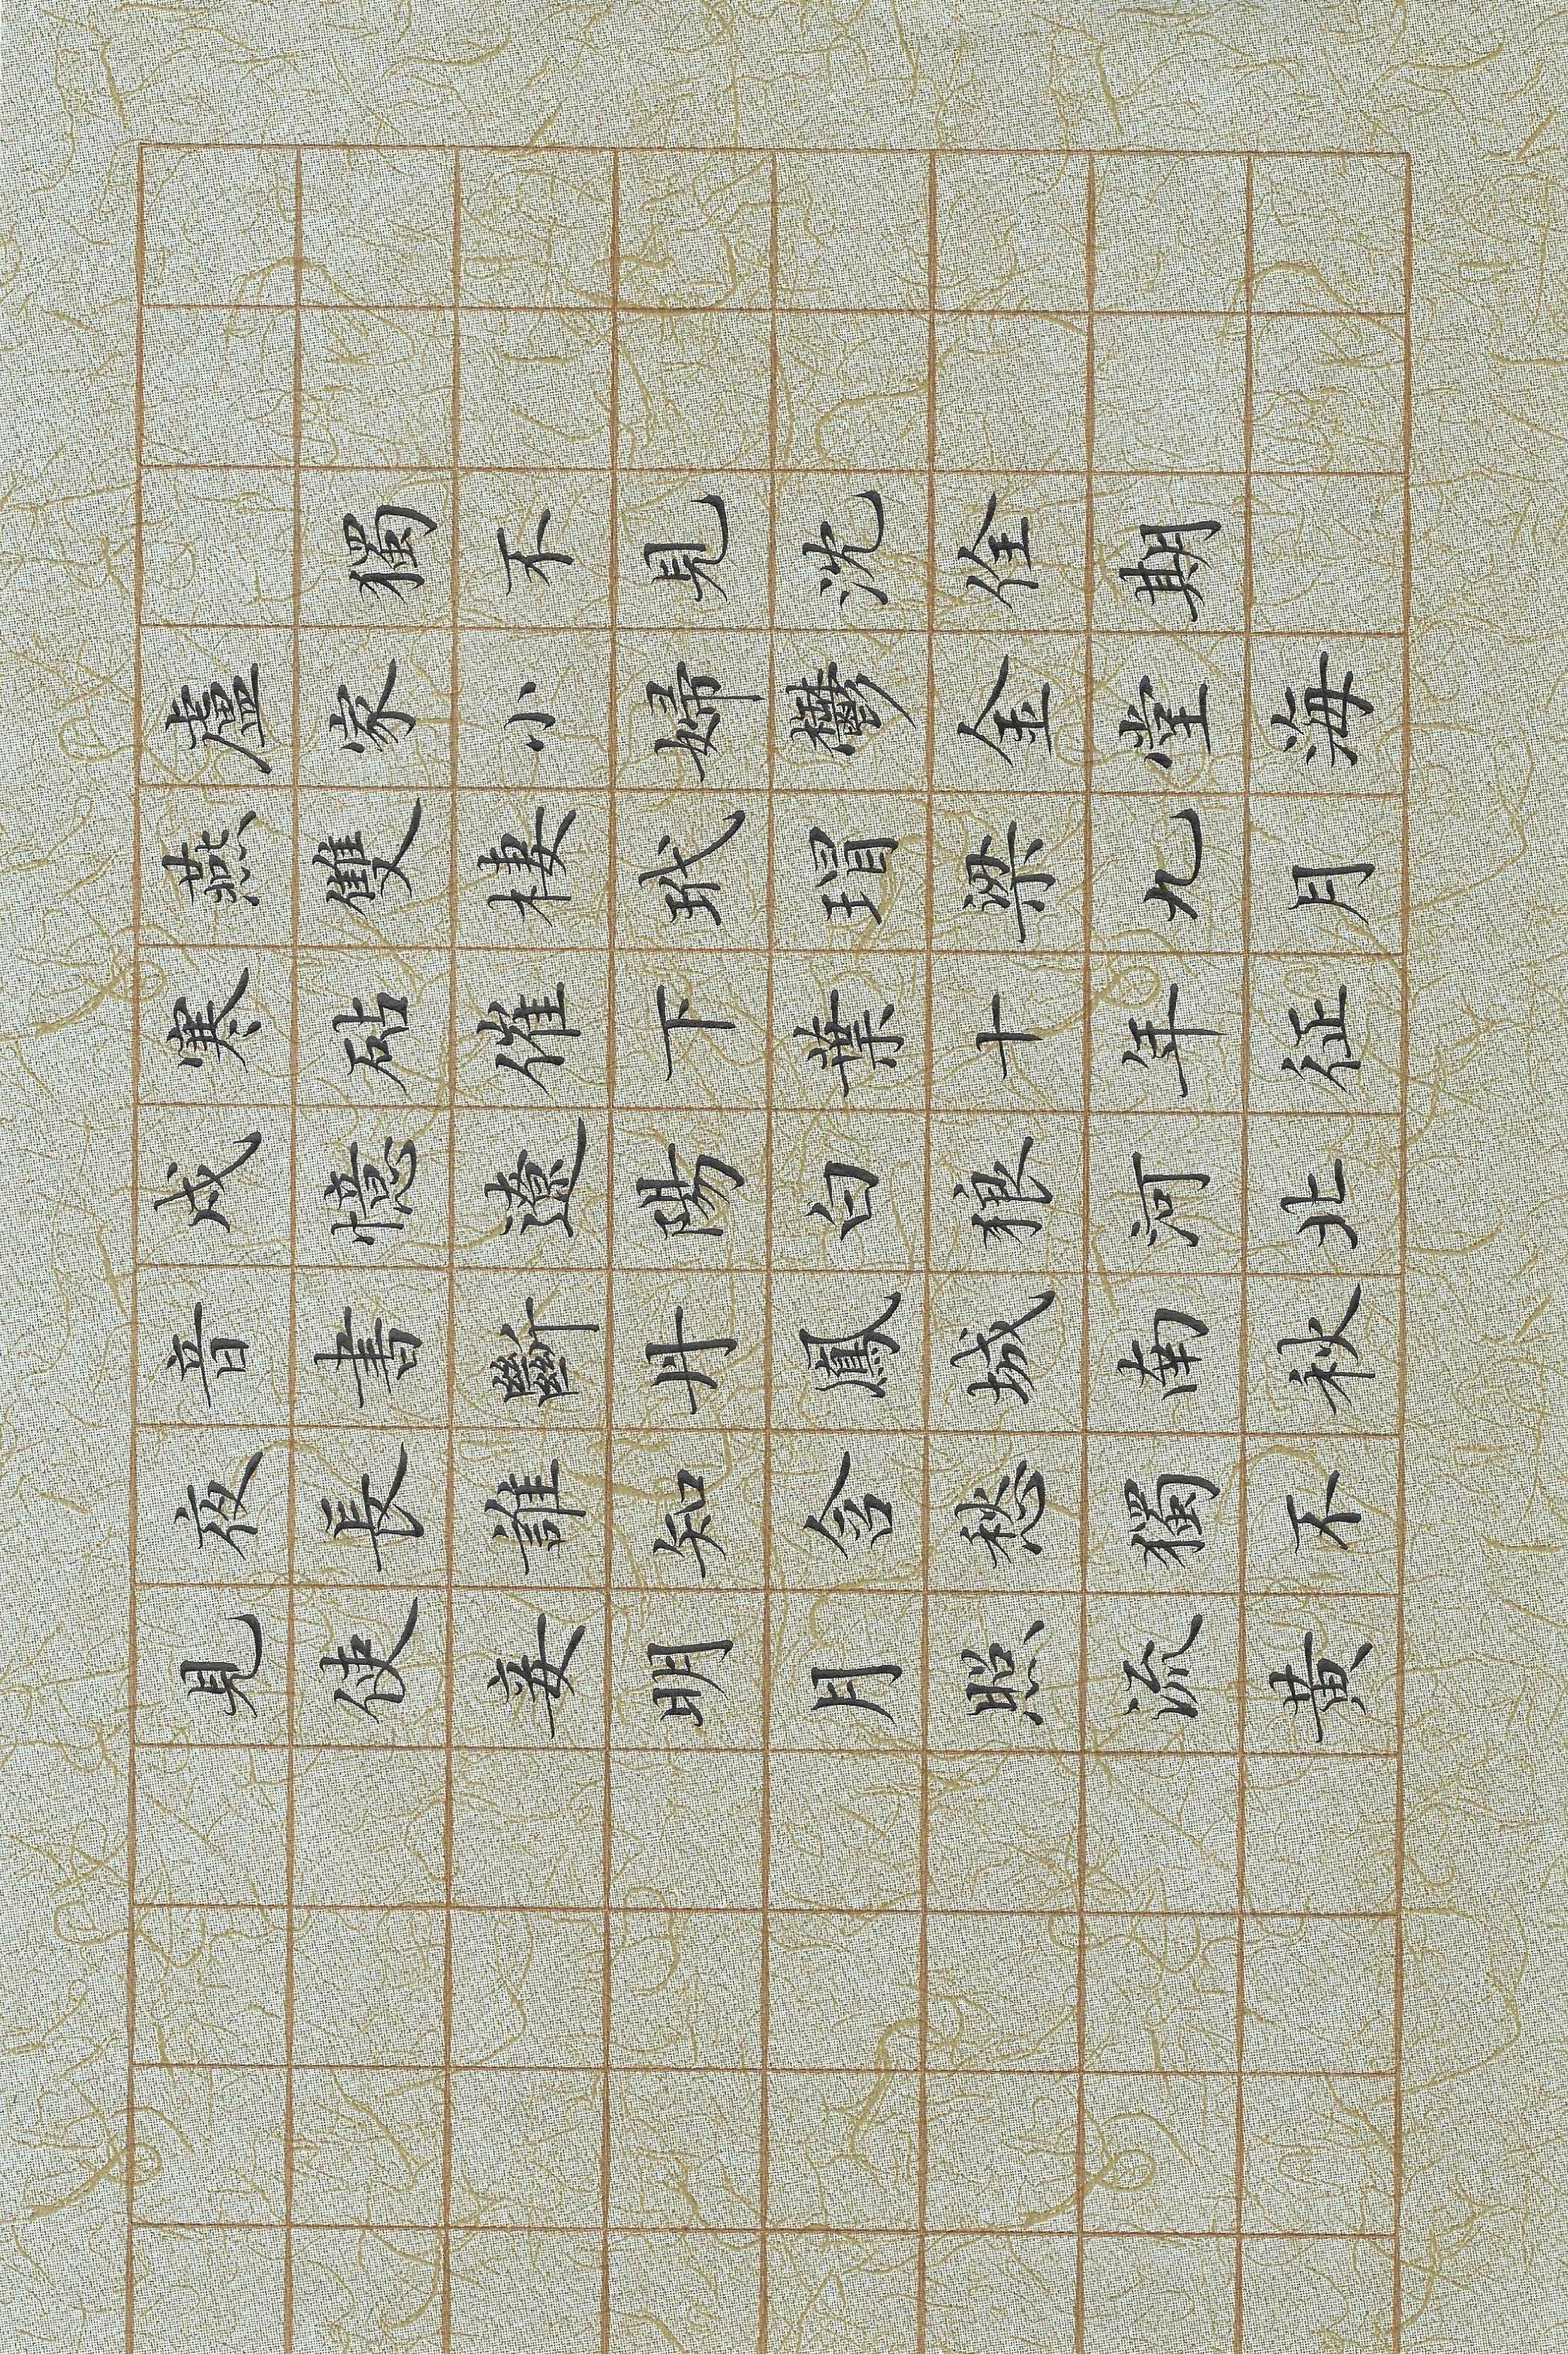 獨不見沈佺期
盧家小婦鬱金堂海
燕雙棲玳瑁梁九月
寒砧催下葉十年征
戍憶遼陽白狼河北
音書斷丹鳳城南秋
夜長誰知含愁獨不
見使妾明月照流黄